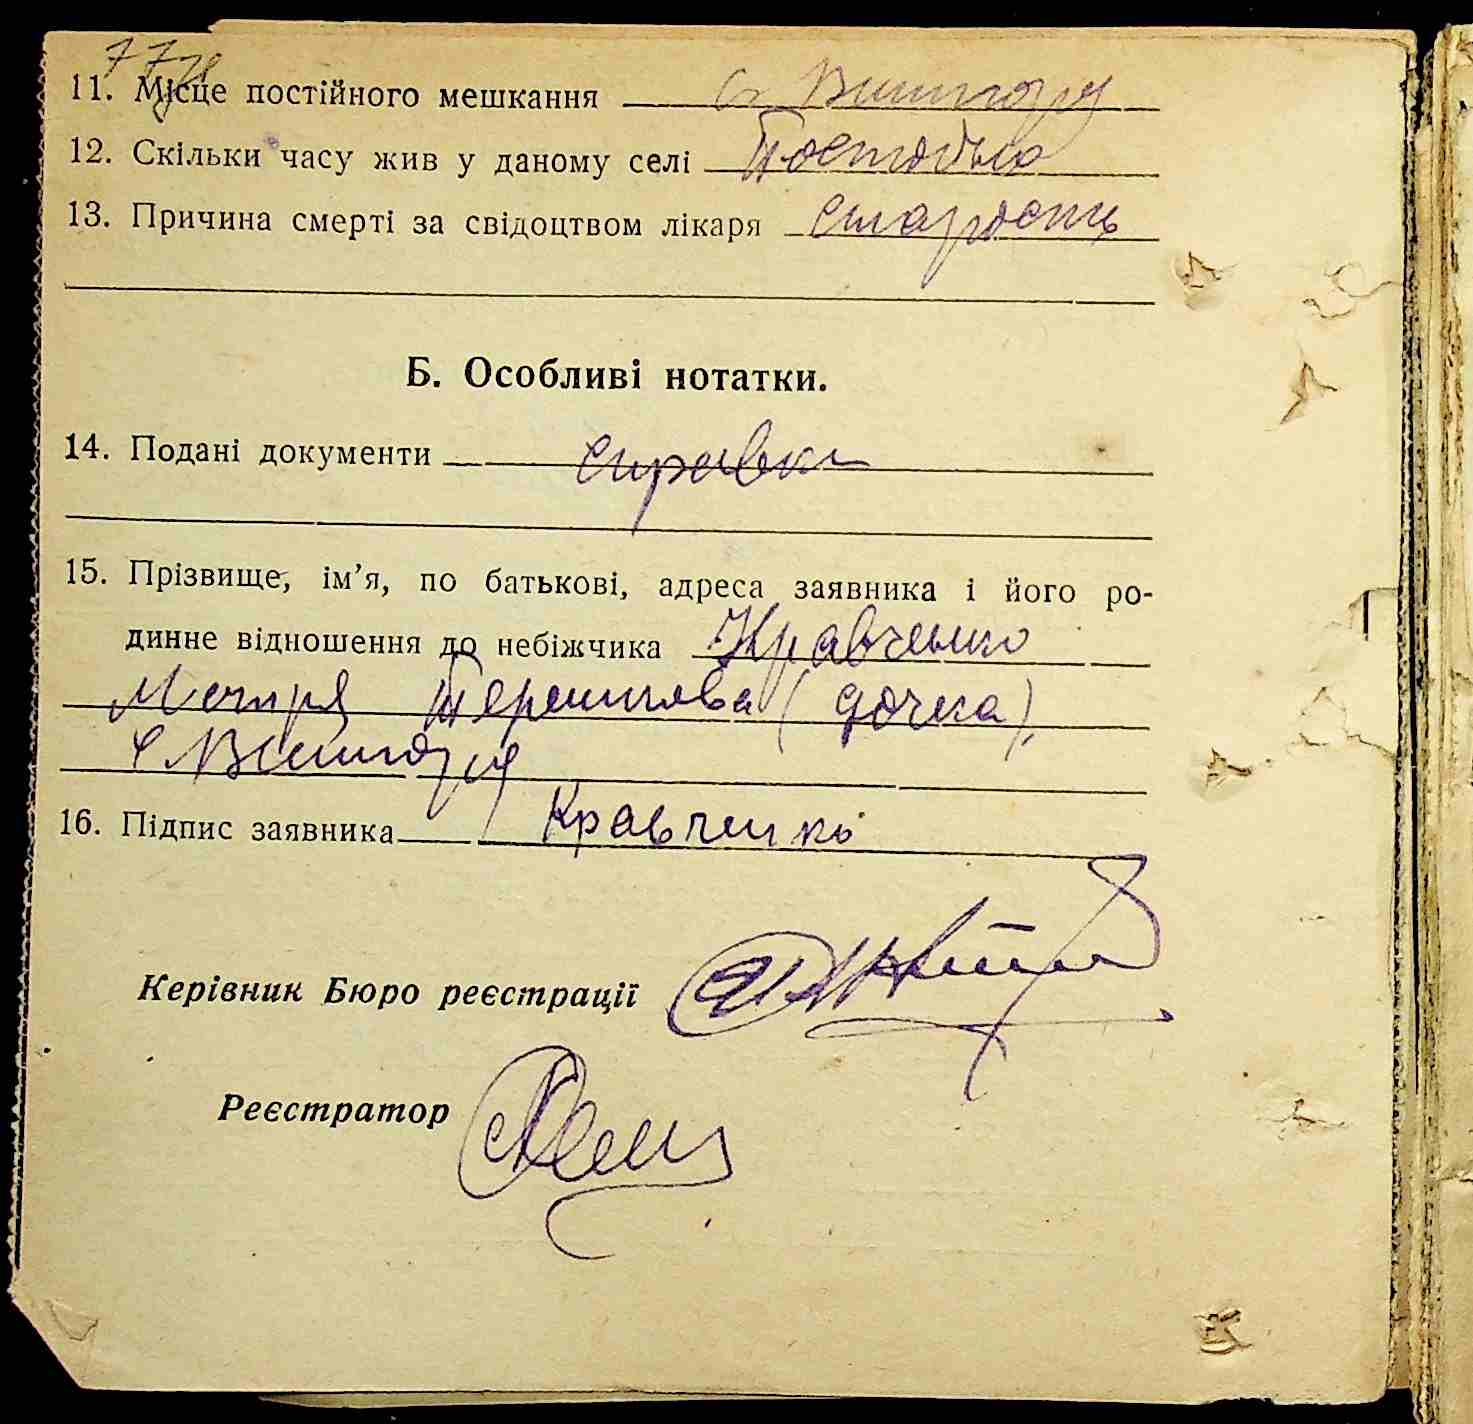 11. Місце постійного мешкання с. Вишгора
12. Скільки часу жив у даному селі Постойно
13. Причина смерті за свідоцтвом лікаря старость
Б. Особливі нотатки.
14. Подані документи справка
15. Прізвище, ім’я, по батькові, адреса заявника і його ро-
динне відношення до небіжчика Кравченко
(дочка),
с. Вишгора
16. Підпис заявника Кравченко
Керівник Бюро реєстрації
Реєстратор